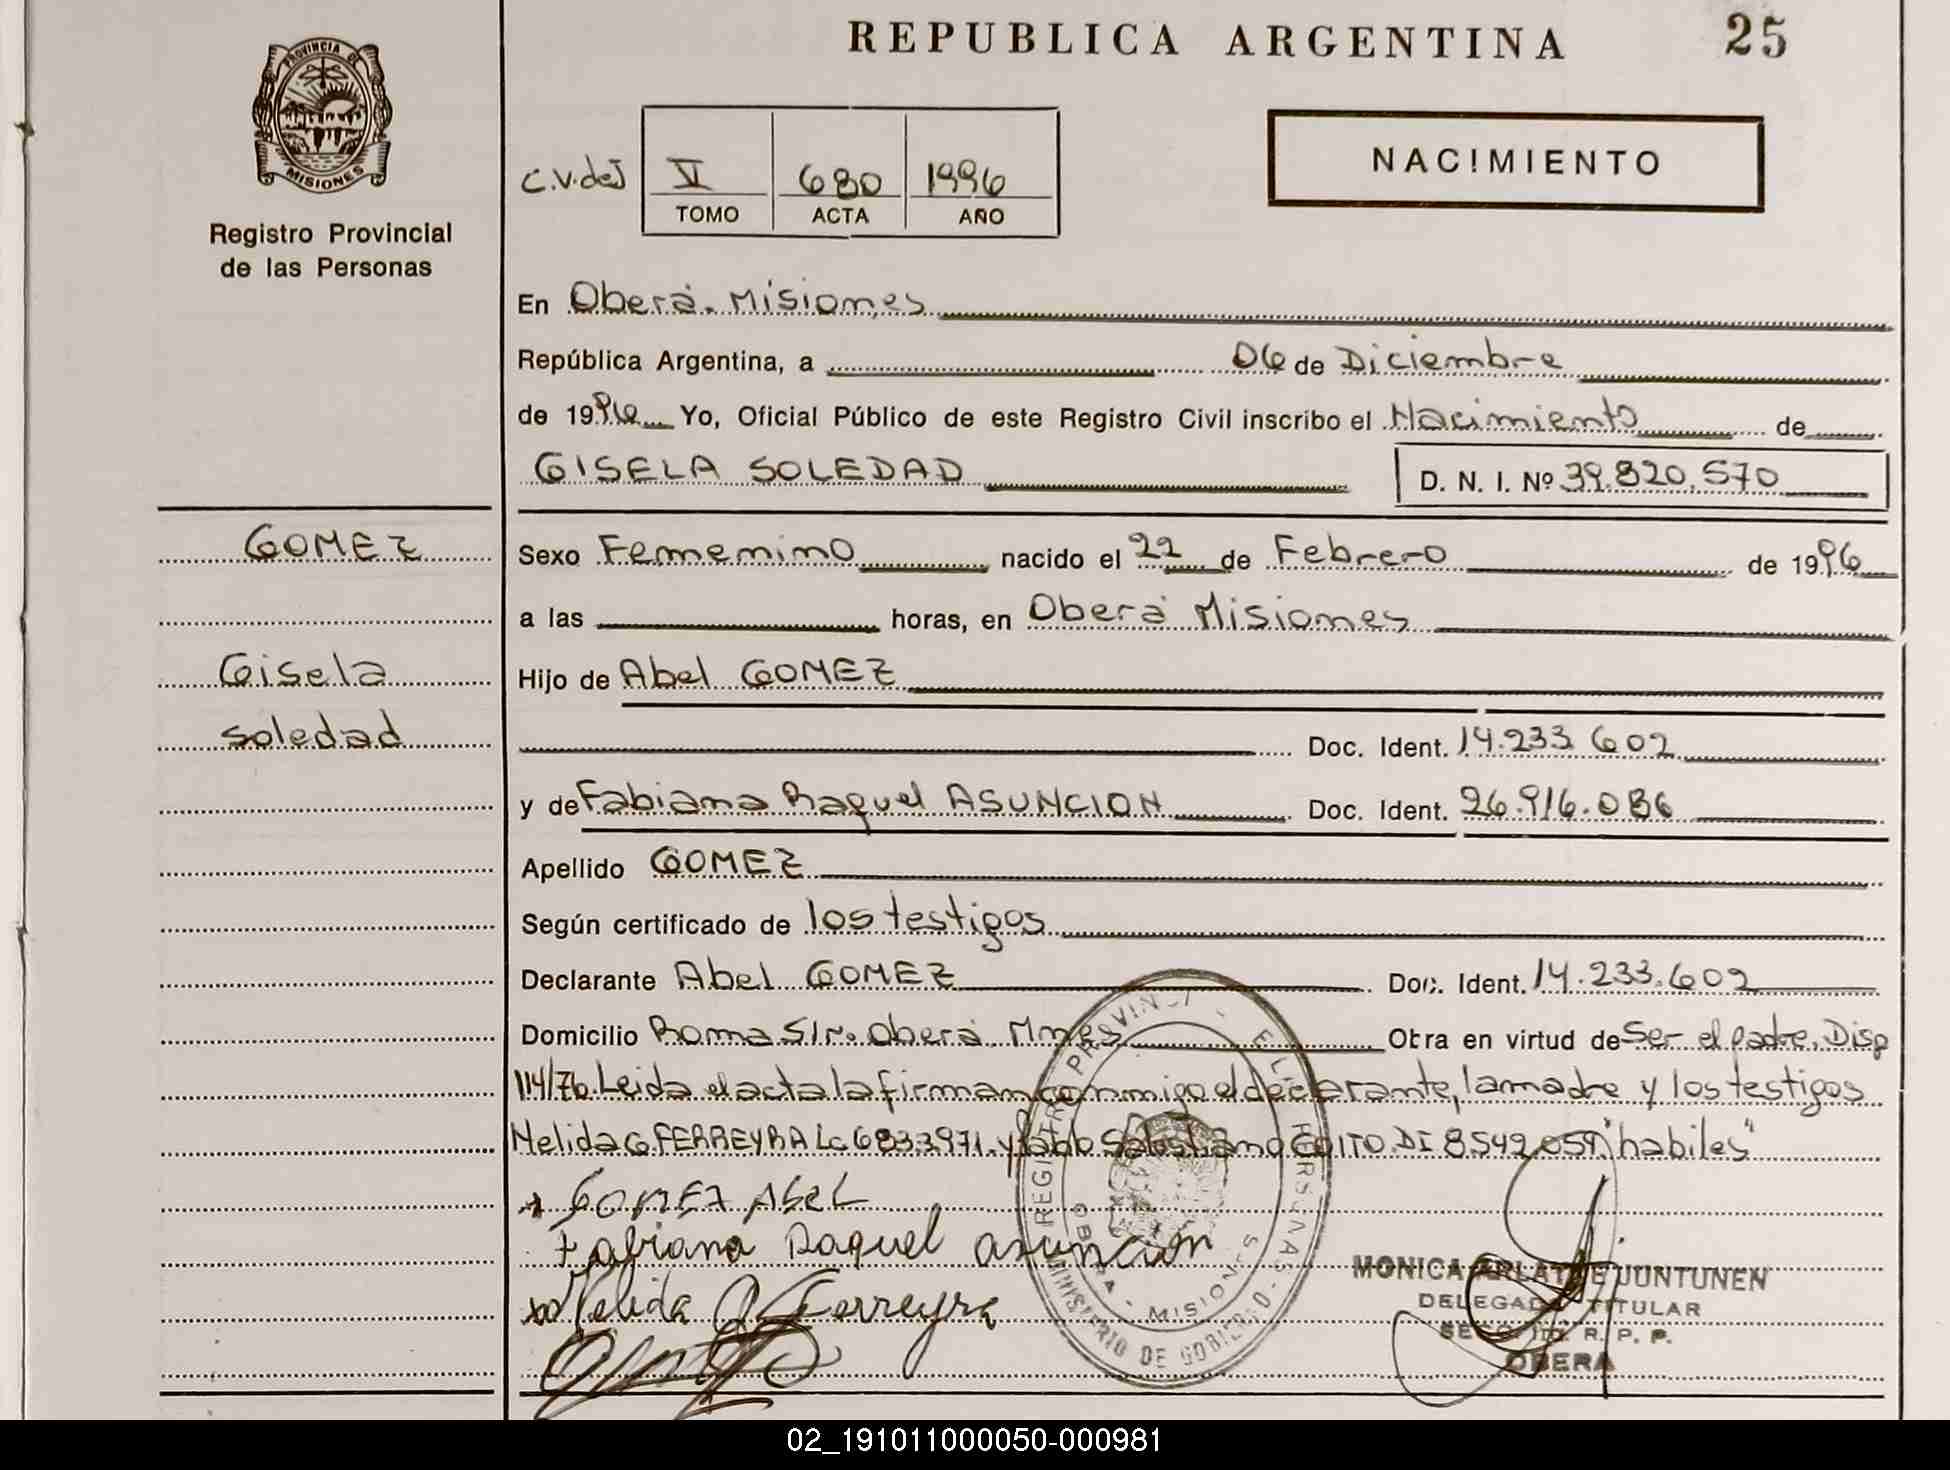 REPUBLICA ARGENTINA 25
PROVINCIA DE
MISIONES
Registro Provincial
de las Personas
C.V.deJ
V 680 1996
TOMO ACTA AÑO
NACIMIENTO
En Oberá. Misiones
República Argentina, a 06 de Diciembre
de 1996 Yo, Oficial Público de este Registro Civil inscribo el Nacimiento de
GISELA SOLEDAD D. N. I. Nº 39.820.570
GOMEZ
Gisela
Soledad
Sexo Femenino nacido el 22 de Febrero de 1996
a las horas, en Oberá Misiones
Hijo de Abel GOMEZ
Doc. Ident. 14.233.602
y de Fabiana Raquel ASUNCION Doc. Ident. 26.916.086
Apellido GOMEZ
Según certificado de los testigos
Declarante Abel GOMEZ Doc. Ident. 14.233.602
Domicilio Roma S/r. Oberá Mnes Otra en virtud de Ser el padre. Disp
114/76. Leida el acta la firman conmigo el declarante, la madre y los testigos
Nelida G. FERREYRA Lc 6833971. y DI 8.542.059 "habiles"
GOMEZ AbeL
Fabiana Raquel asuncion
Nelida Ferreyra
REGISTRO PROVINCIAL DE LAS PERSONAS - MINISTERIO DE GOBIERNO
OBERA - MISIONES
MONICA ARLETTE JUNTUNEN
DELEGADA TITULAR
R. P. P.
OBERA
02_191011000050-000981